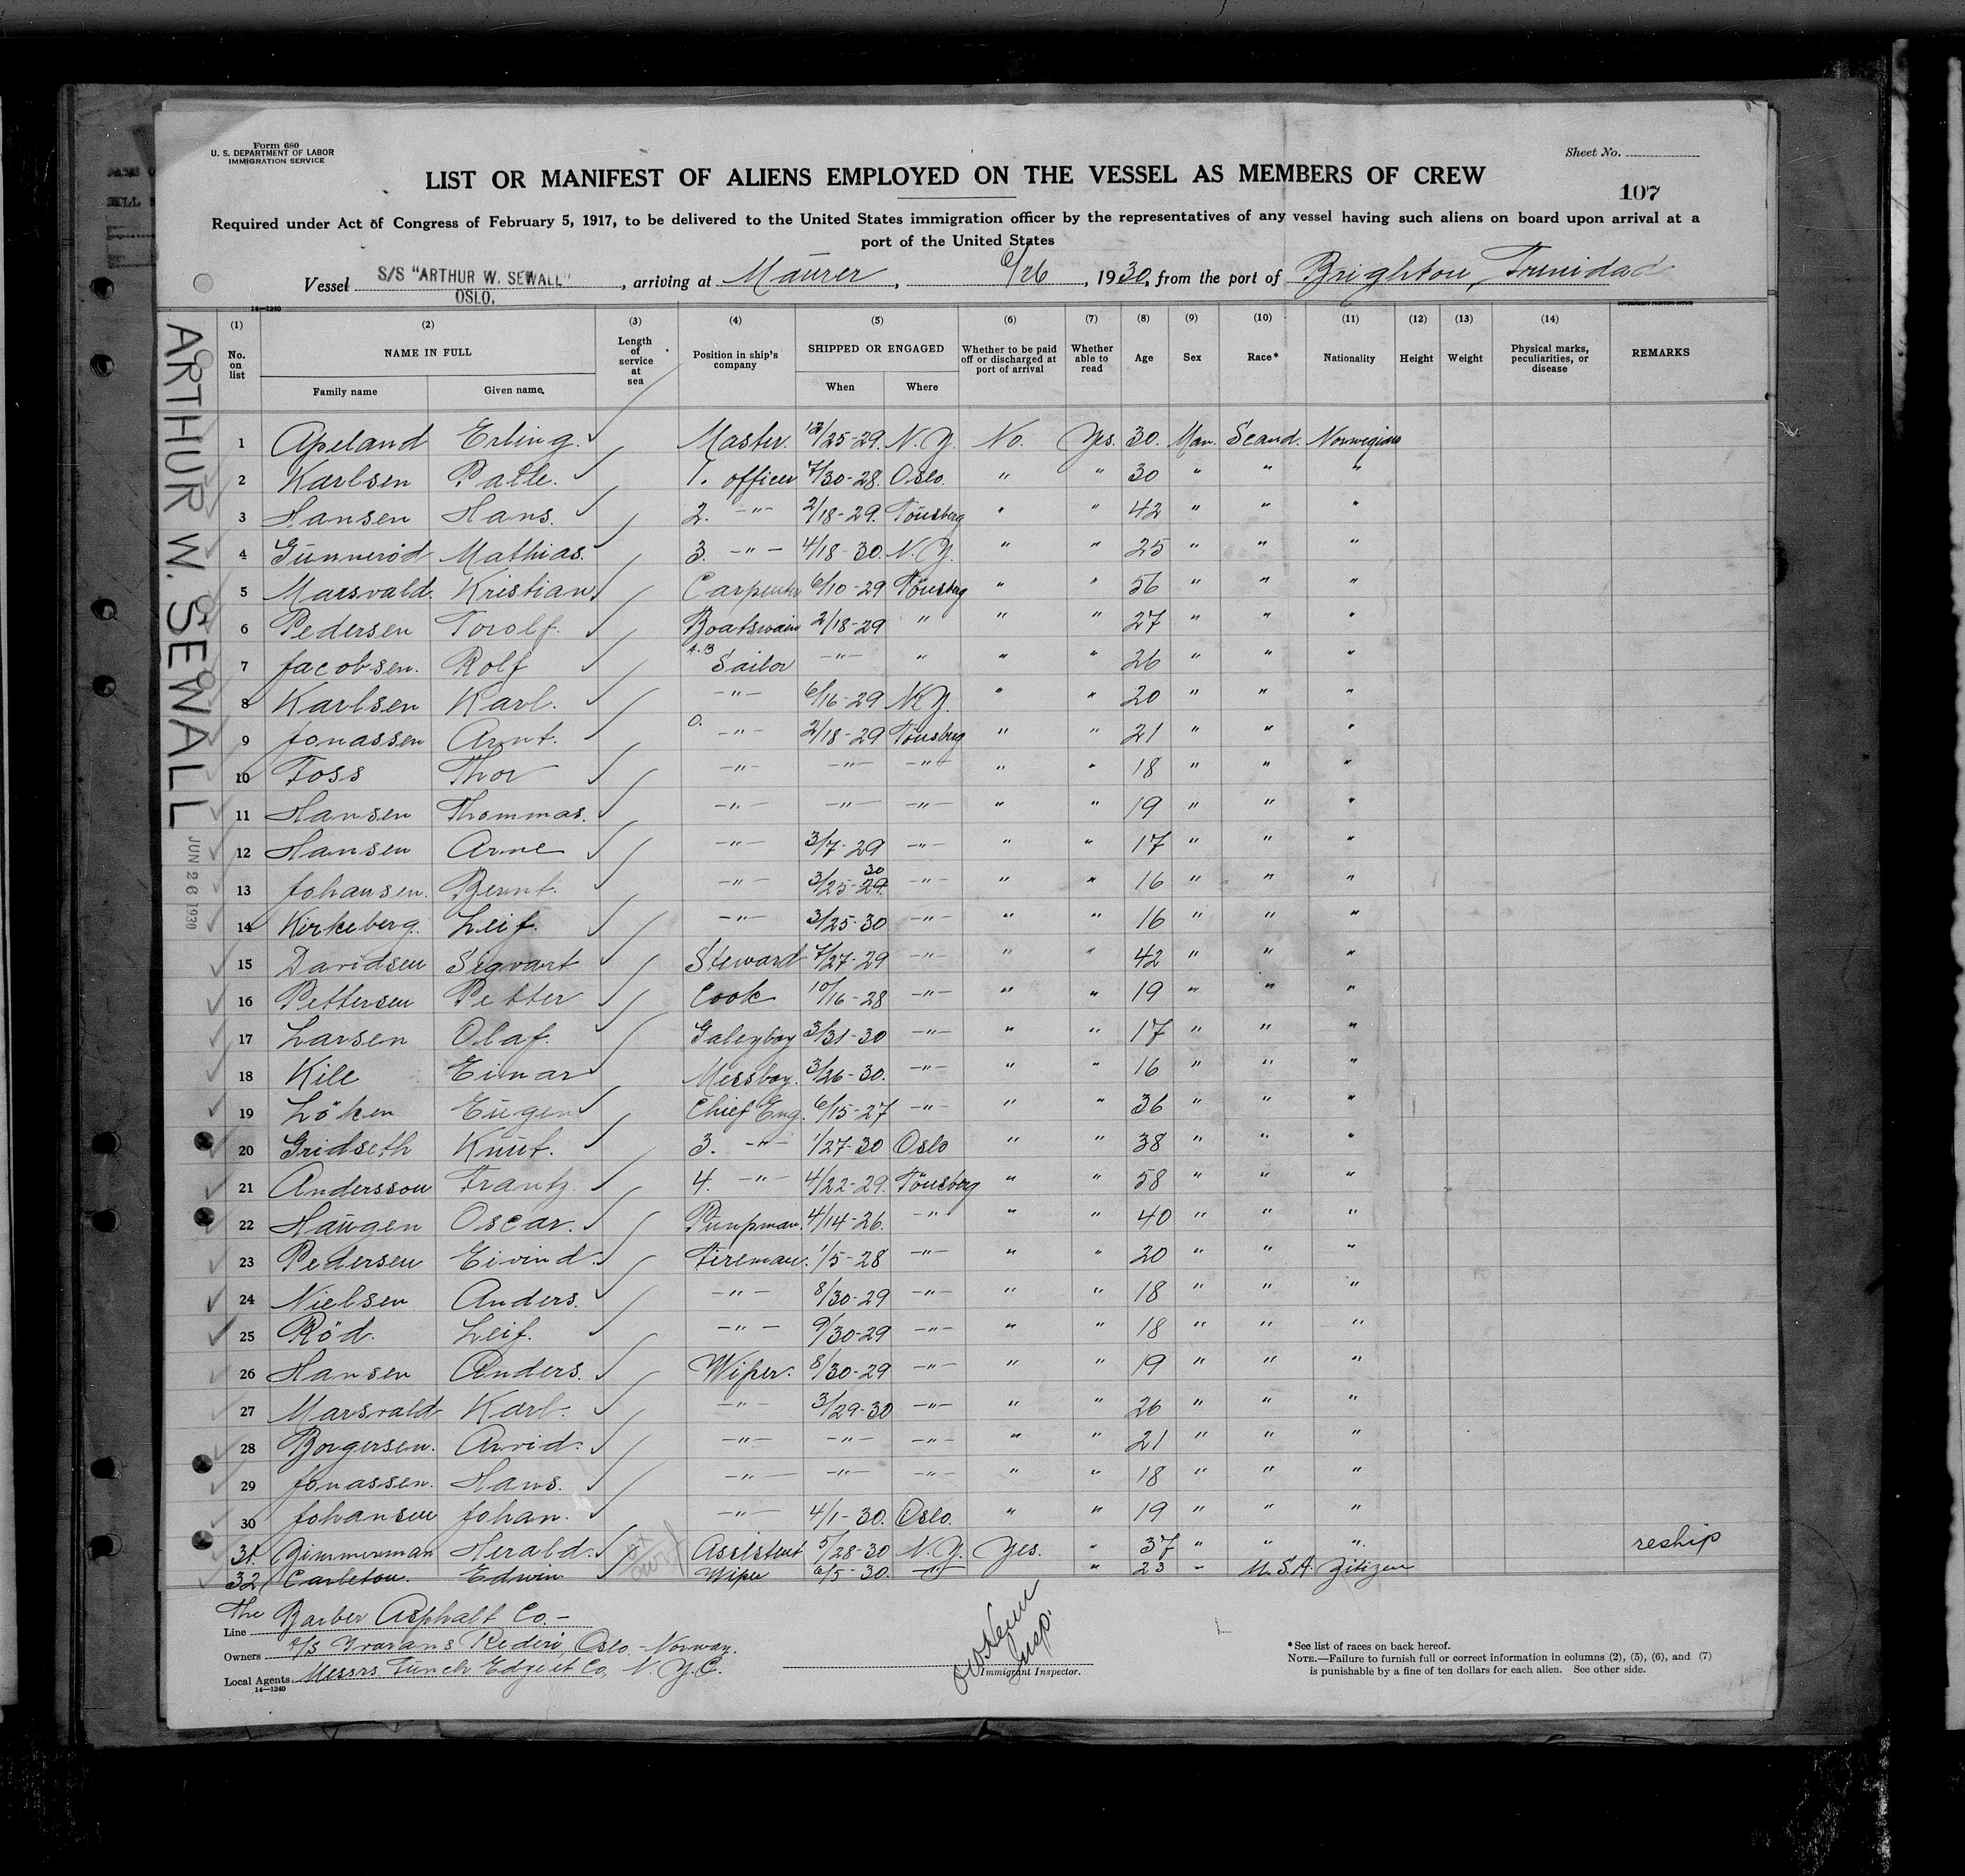 Form 680
U. S. DEPARTMENT OF LABOR
IMMIGRATION SERVICE
Sheet No.
LIST OR MANIFEST OF ALIENS EMPLOYED ON THE VESSEL AS MEMBERS OF CREW
107
Required under Act of Congress of February 5, 1917, to be delivered to the United States immigration officer by the representatives of any vessel having such aliens on board upon arrival at a
port of the United States
Vessel S/S "ARTHUR W. SEWALL" OSLO. , arriving at Maurer , 6/26 , 1930, from the port of Brighton, Trinidad
14—1240
GOVERNMENT PRINTING OFFICE
ARTHUR W. SEWALL
JUN 26 1930
(1) (2) (3) (4) (5) (6) (7) (8) (9) (10) (11) (12) (13) (14)
No. on list NAME IN FULL Length of service at sea Position in ship's company SHIPPED OR ENGAGED Whether to be paid off or discharged at port of arrival Whether able to read Age Sex Race* Nationality Height Weight Physical marks, peculiarities, or disease REMARKS
Family name Given name. When Where
1 Apeland Erling. Master. 12/25-29. N.Y. No. Yes. 30. Man. Scand. Norwegian
2 Karlsen Palle. 1. officer 7/30-28. Oslo. " " 30 " " "
3 Hansen Hans. 2. -"- 2/18-29. Tönsberg " " 42 " " "
4 Gunneröd Mathias. 3. -"- 4/18-30. N.Y. " " 25 " " "
5 Marsvald. Kristian. Carpenter 6/10-29 Tönsberg " " 56 " " "
6 Pedersen Torolf. Boatswain 2/18-29 " " " 27 " " "
7 Jacobsen. Rolf A.B Sailor -"- " " " 26 " " "
8 Karlsen Karl. -"- 6/16-29 N.Y. " " 20 " " "
9 Jonassen Arnt. O. -"- 2/18-29 Tönsberg " " 21 " " "
10 Foss Thor -"- -"- -"- " " 18 " " "
11 Hansen Thommas. -"- -"- -"- " " 19 " " "
12 Hansen Arne -"- 3/7-29 -"- " " 17 " " "
13 Johansen. Bernt. -"- 3/25-29. 30 -"- " " 16 " " "
14 Kirkeberg. Leif. -"- 3/25-30 -"- " " 16 " " "
15 Davidsen Sigvart Steward 7/27-29 -"- " " 42 " " "
16 Pettersen Petter Cook 10/16-28 -"- " " 19 " " "
17 Larsen Olaf. Galeyboy 3/31-30 -"- " " 17 " " "
18 Kile Einar Messboy. 3/26-30. -"- " " 16 " " "
19 Löken Eugen Chief Eng. 6/15-27 -"- " " 36 " " "
20 Gridseth Knut. 3. -"- 1/27-30 Oslo " " 38 " " "
21 Andersson Frantz. 4. -"- 4/22-29. Tönsberg " " 58 " " "
22 Haugen Oscar. Pumpman. 4/14-26. -"- " " 40 " " "
23 Pedersen Eivind. Fireman. 1/5-28 -"- " " 20 " " "
24 Nielsen Anders. -"- 8/30-29 -"- " " 18 " " "
25 Röd. Leif. -"- 9/30-29 -"- " " 18 " " "
26 Hansen Anders. Wiper. 8/30-29 -"- " " 19 " " "
27 Marsvald Karl. -"- 3/29-30 -"- " " 26 " " "
28 Borgersen. Arvid. -"- -"- -"- " " 21 " " "
29 Jonassen. Hans. -"- -"- -"- " " 18 " " "
30 Johansen Johan. -"- 4/1-30. Oslo. " " 19 " " "
31. Zimmerman Herald. Assistent 5/28-30 N.Y. Yes. " 37 " " ". reship
32 Carleton. Edwin Wiper 6/5-30. -"- " 23 " U.S.A. Zitizen
Line The Barber Asphalt Co.-
Owners A/S Rederi, Oslo-Norway.
Local Agents Messrs. Funch Edye et Co, N.Y.C.
14—1240
Insp.
Immigrant Inspector.
*See list of races on back hereof.
NOTE.—Failure to furnish full or correct information in columns (2), (5), (6), and (7)
is punishable by a fine of ten dollars for each alien. See other side.